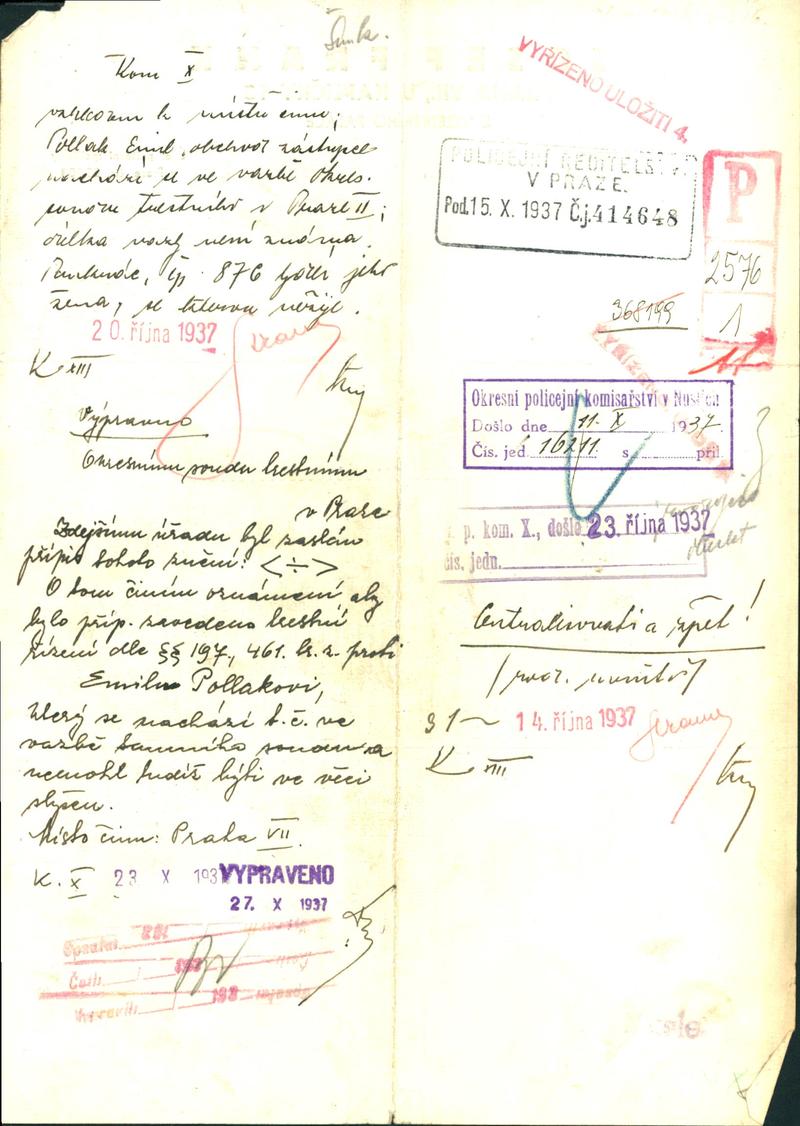 Kom X
vzhledem k místu činu;
Pollak Emil, obchod. zástupce
nachází se ve vazbě okres.
soudu trestního v Praze II;
délka vazby není známa.
Pankrác, čp. 876 bydlí jeho
žena, se kterou nežije.
20. října 1937
K XIII
Výpravno
Okresnímu soudu trestnímu
v Praze
Zdejšímu úřadu byl zaslán
přípis tohoto znění: < ÷ >
O tom činím oznámení aby
bylo příp. zavedeno trestní
řízení dle §§ 197, 461. tr. z. proti
Emilu Pollakovi,
který se nachází t. č. ve
vazbě tamního soudu a
nemohl tudíž býti ve věci
slyšen.
Místo činu: Praha VII.
K. X 23 X 193
VYPRAVENO
27. X 1937
VYŘÍZENO ULOŽITI 4.
POLICEJNÍ ŘEDITELSTVÍ
V PRAZE.
Pod. 15. X. 1937 Č.j. 414648
P
2576
1
368199
Okresní policejní komisařství v Nuslích
Došlo dne 11. X 1937.
Čís. jed. 16211 s příl.
p. kom. X., došlo 23. října 1937
čís. jedn.
Centralisovati a zpět!
31
14. října 1937
K XIII